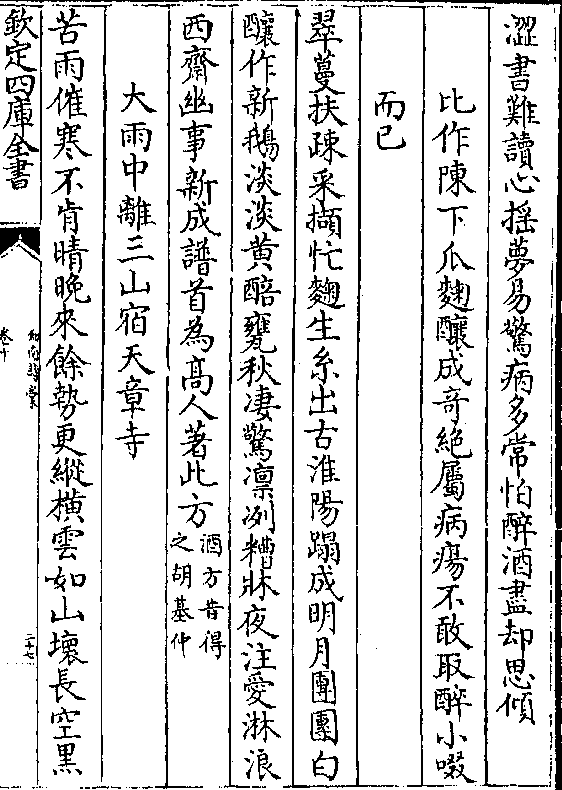 澀書難讀心揺夢易驚病多常怕醉酒盡却思傾
比作陳下瓜麴釀成竒絶屬病瘍不敢取醉小啜
而已
翠蔓扶疎采擷忙麴生系出古淮陽蹋成明月團團白
釀作新鵝淡淡黄醅甕秋凄驚凛冽糟牀夜注愛淋浪
西齋幽事新成譜首為髙人著此方酒方昔得
之胡基仲
大雨中離三山宿天章寺
苦雨催寒不肯晴晚來餘勢更縱横雲如山壞長空黒
欽定四庫全書
劍南詩藁
卷十